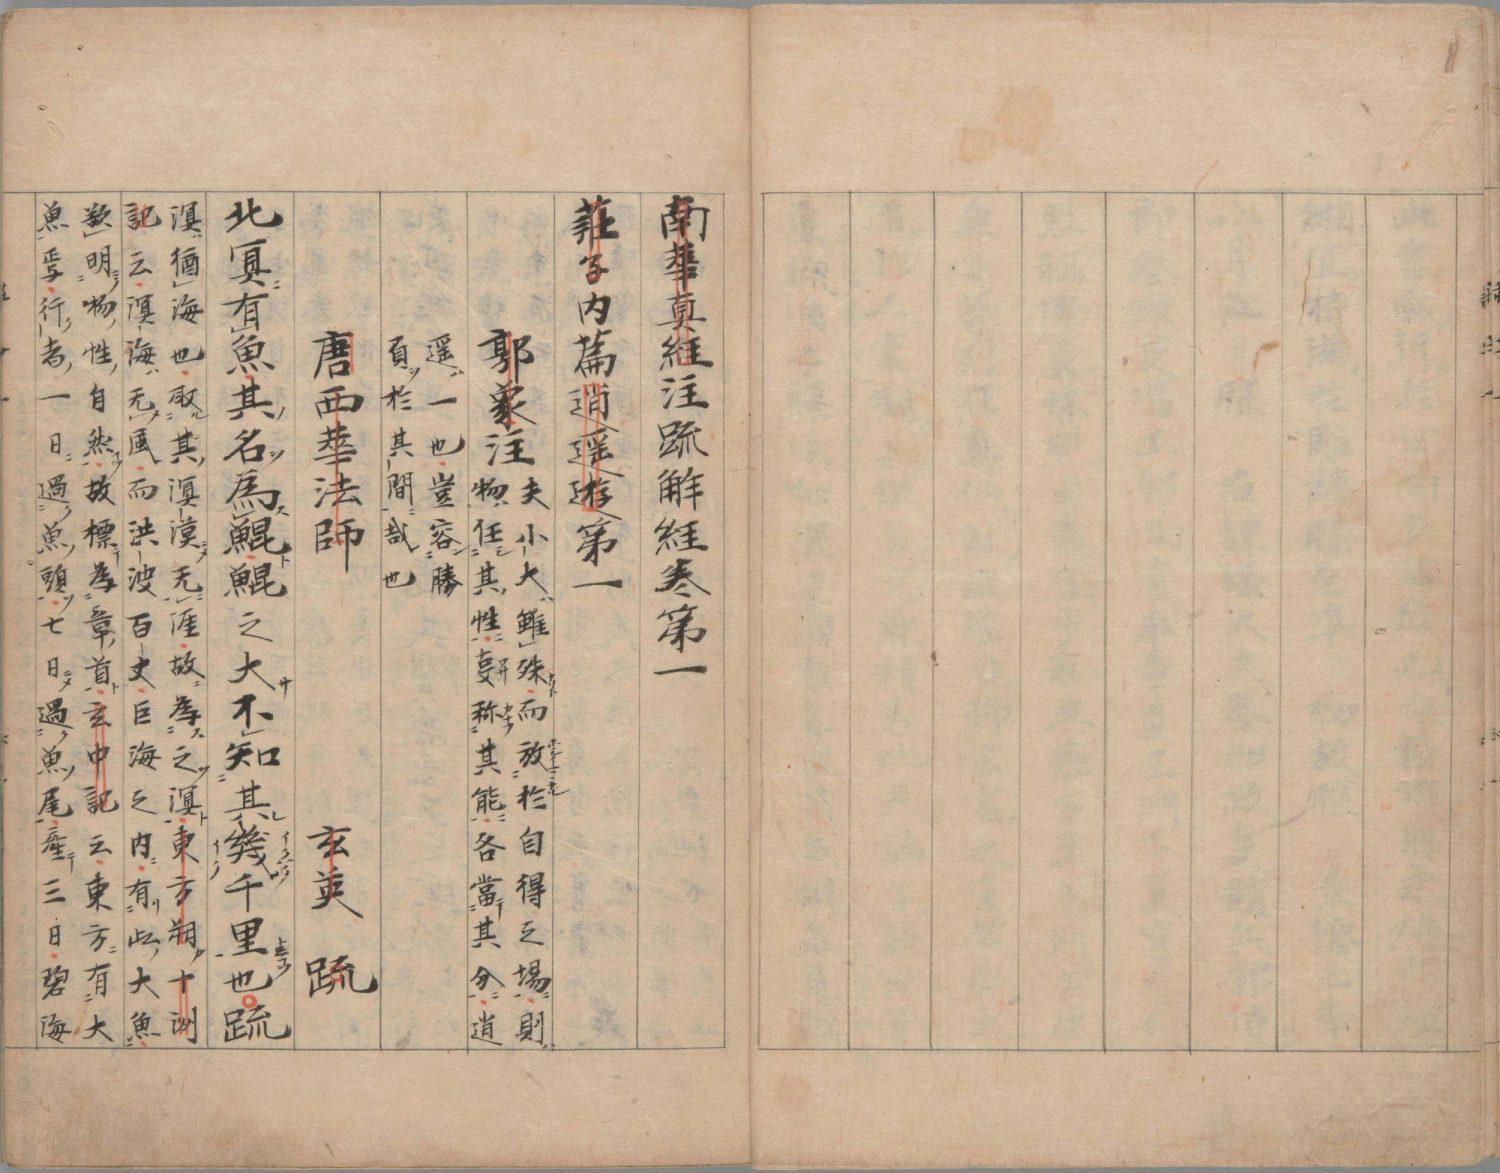 南華真経注疏解経巻第一
荘子内篇逍遥遊第一
郭象注
夫小大雖殊而放於自得之場則
物任其性事称其能各當其分逍
遥一也豈容勝
負於其間哉也
唐西華法師 玄英 疏
北冥有魚其名為鯤鯤之大不知其幾千里也疏
溟猶海也取其溟漠无涯故為之溟東方朔十洲
記云溟海无風而洪波百丈巨海之内有此大魚
欵明物性自然故標為章首玄中記云東方有大
魚焉行者一日過魚頭七日過魚尾産三日碧海